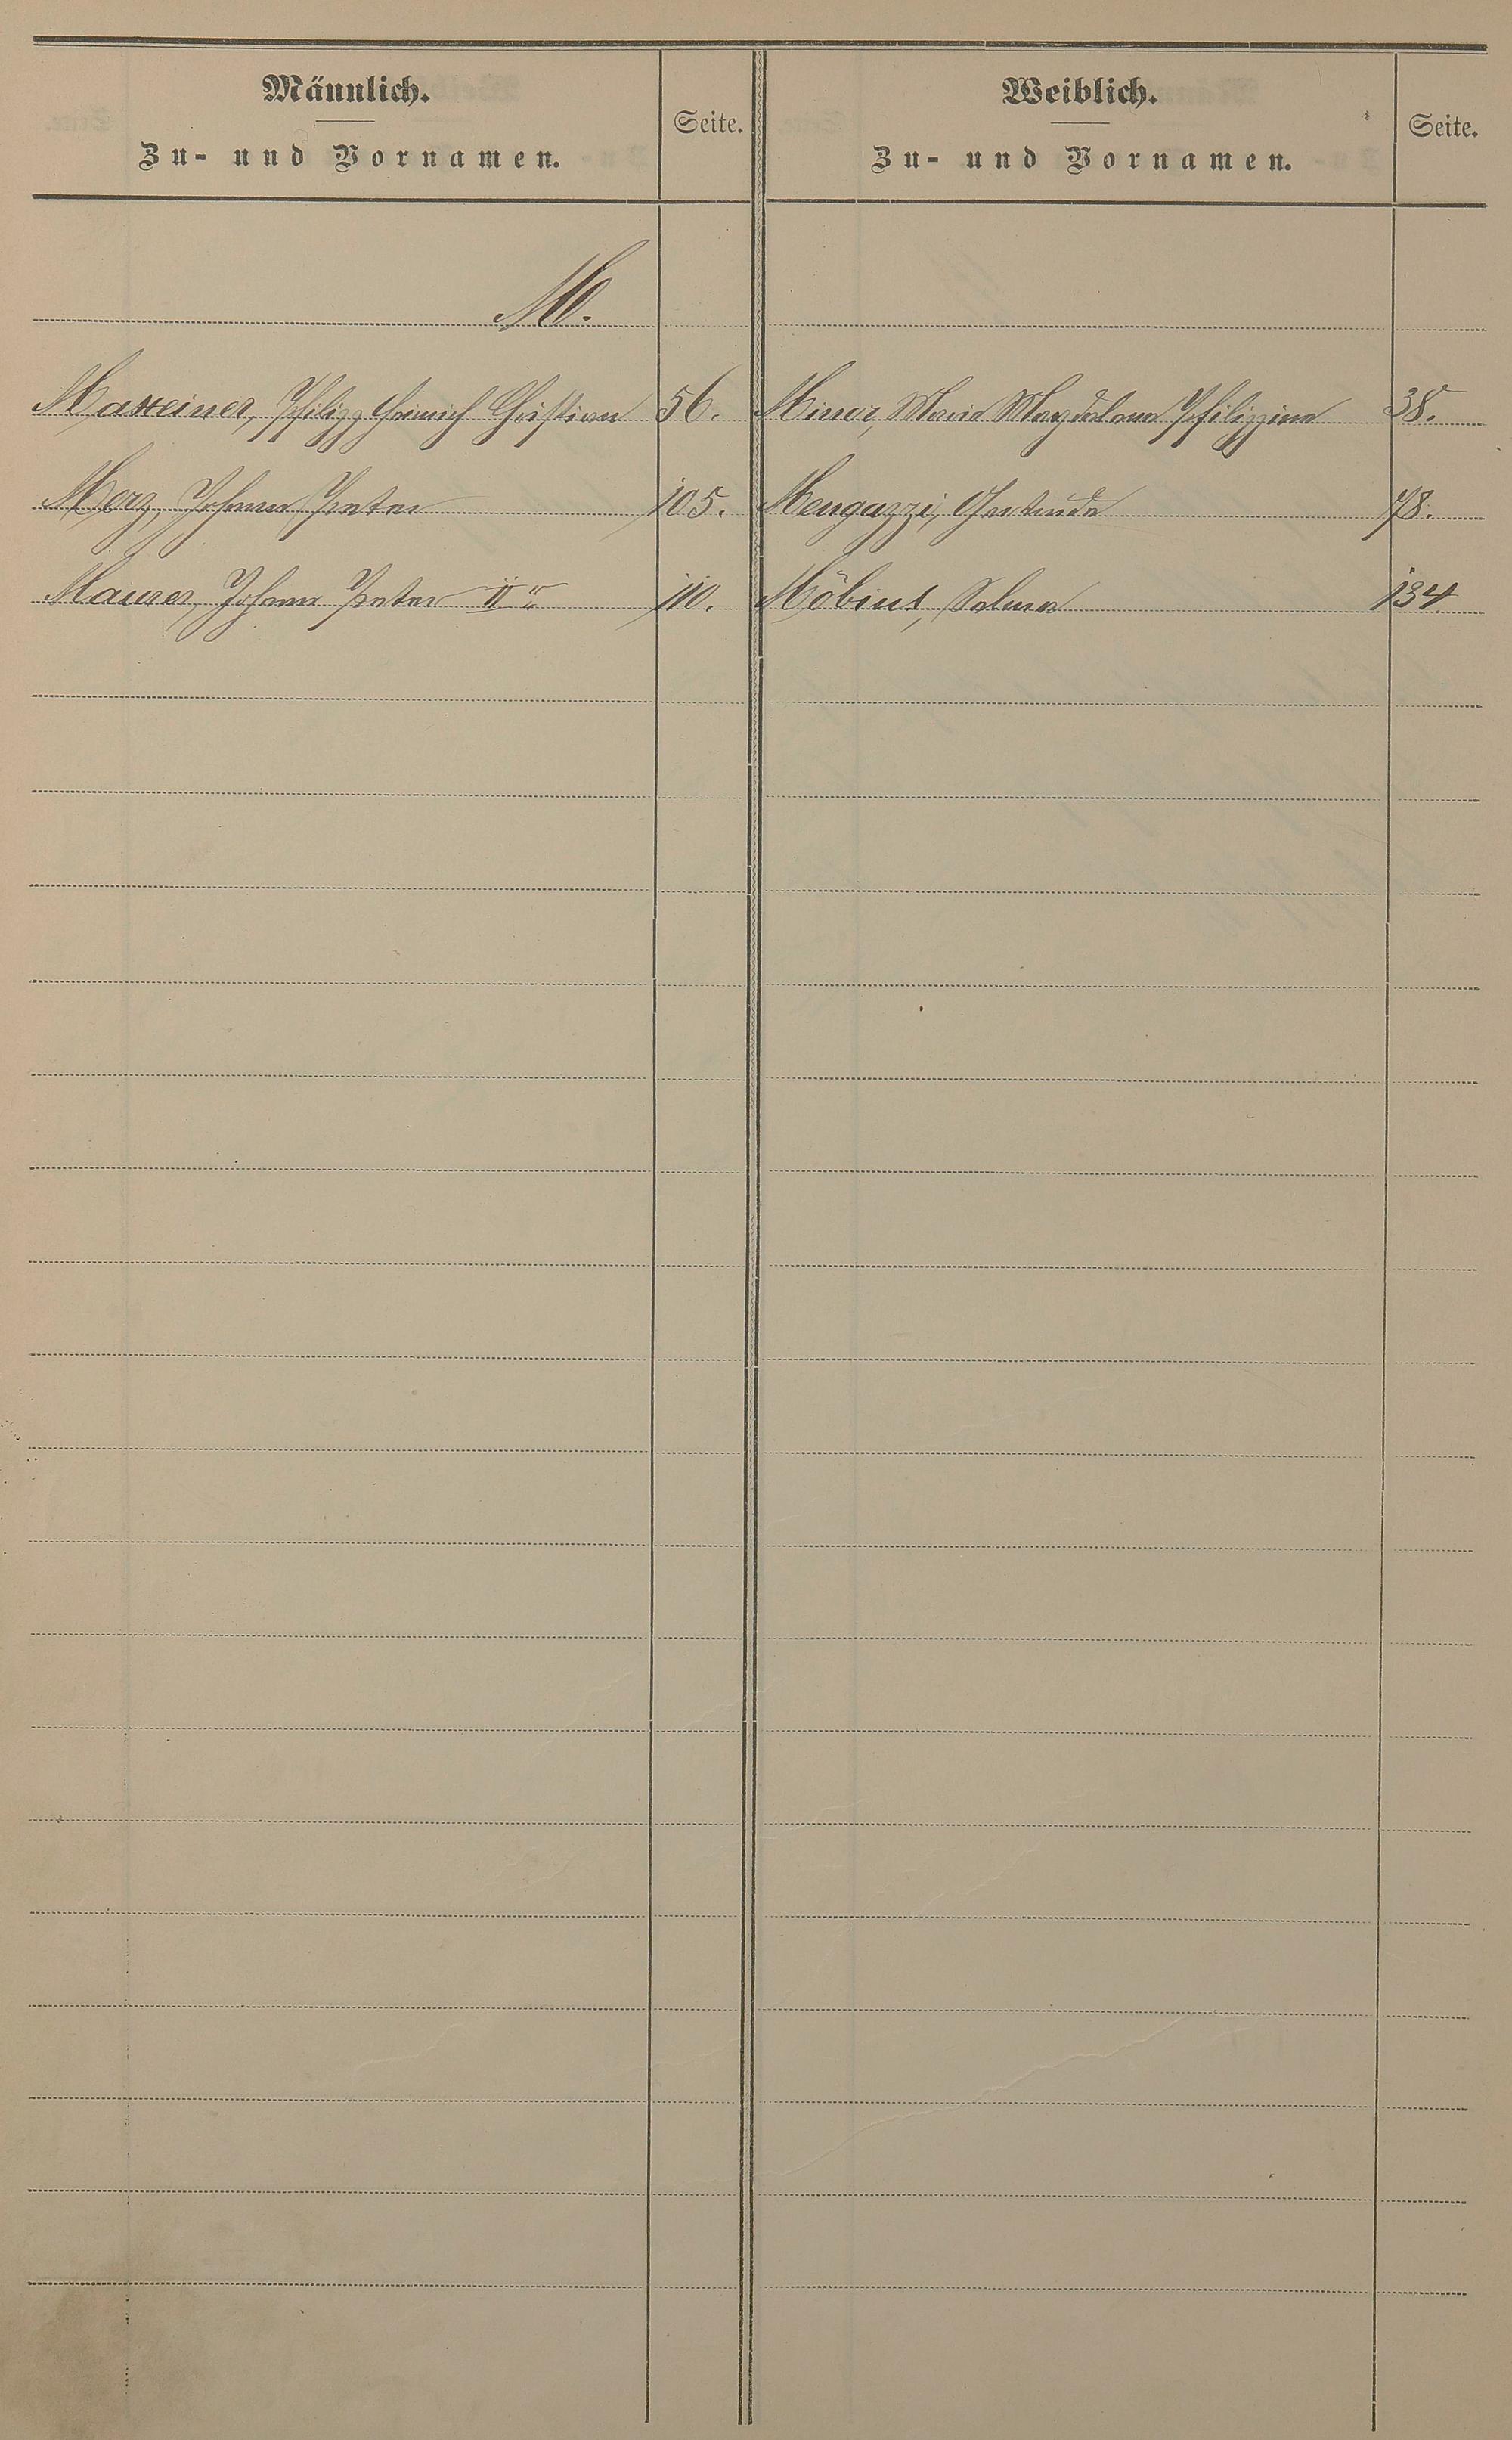 Männlich.
Zu- und Vornamen.
Seite.
Weiblich.
Zu- und Vornamen.
Seite.
M.
Philipp Heinrich Christian 56.
Minor, Maria Magdalena Philippina 38.
Merz, Johann Peter 105.
Mengazzi, Gertrude 78.
Maurer, Johann Peter II 110.
Möbius, Selma 134